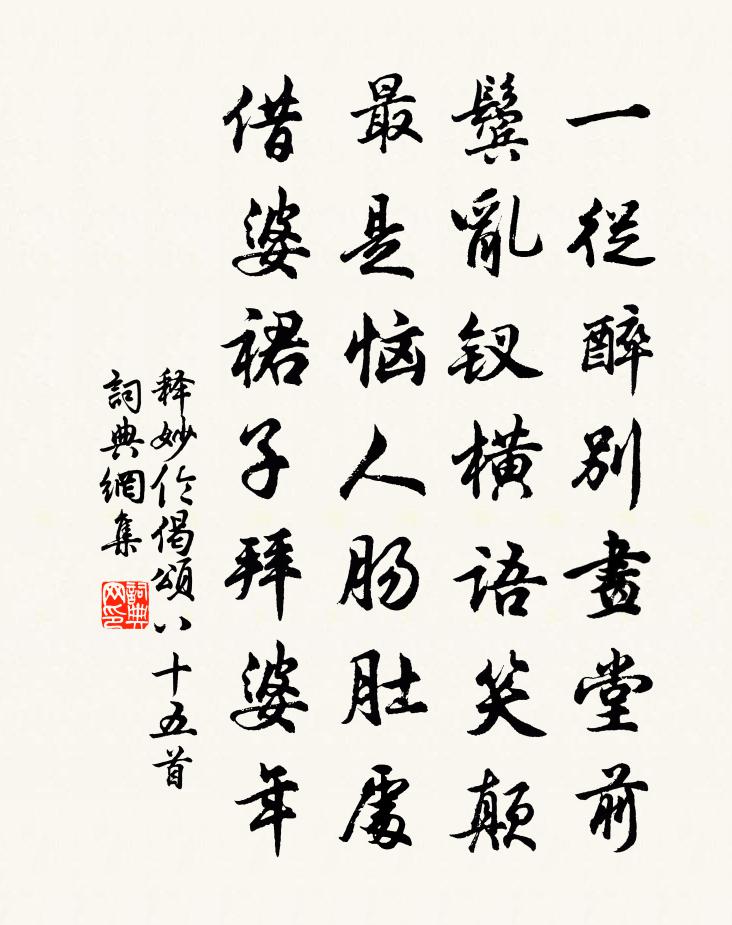 一從醉別畫堂前
鬢亂釵橫語笑顛
最是惱人腸肚處
借婆裙子拜婆年
释妙伦偈頌八十五首
詞典網集
詞典网印